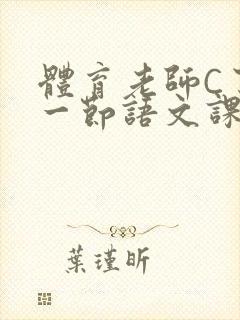 體育老師C
一節語文課
葉瑾昕